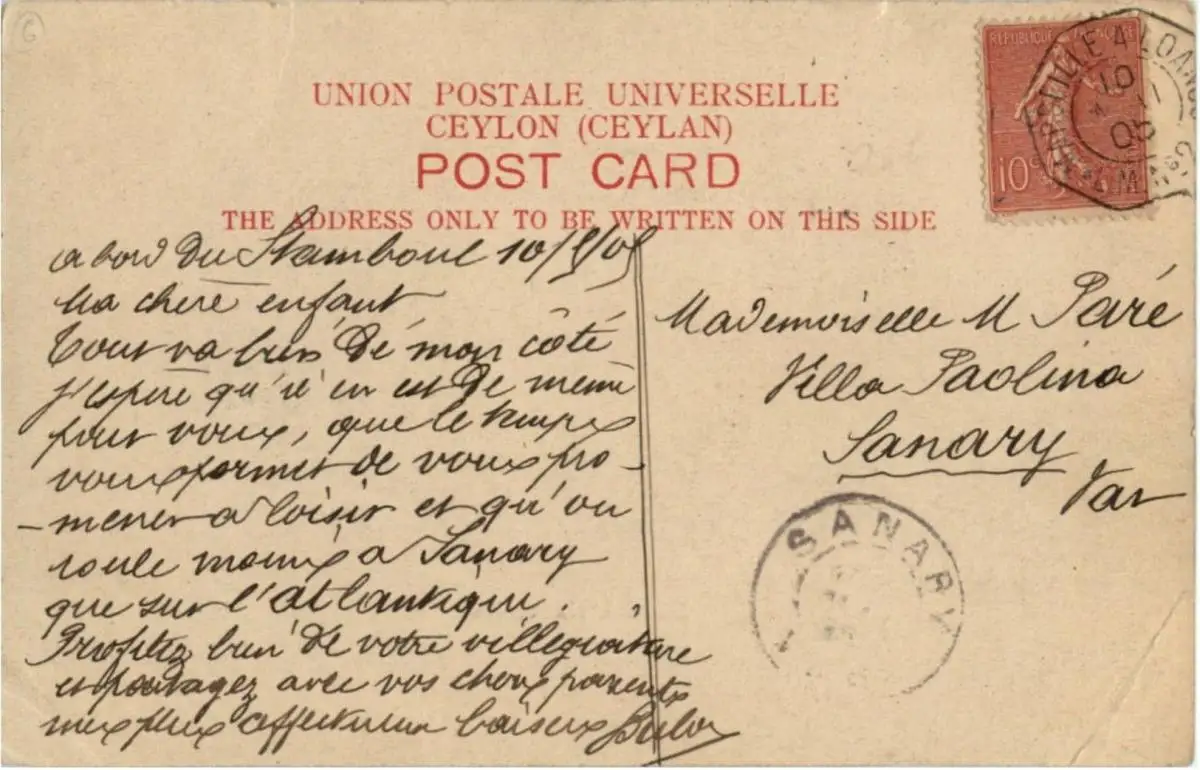 UNION POSTALE UNIVERSELLE
CEYLON (CEYLAN)
POST CARD
THE ADDRESS ONLY TO BE WRITTEN ON THIS SIDE
REPUBLIQUE FRANÇAISE
10
MARSEILLE A LOANGO
10
05
a bord du Stamboul 10/ /05
Ma chere enfant
Tout va bien de mon côté
j'espère qu'il en est de même
pour vous, que le temps
vous permet de vous pro-
-mener a loisir et qu'on
roule moins a Sanary
que sur l'atlantique.
Profitez bien de votre villegiature
et partagez avec vos chers parents
mes plus affectueux baisers
Mademoiselle M Paré
Villa Paolina
Sanary
Var
SANARY